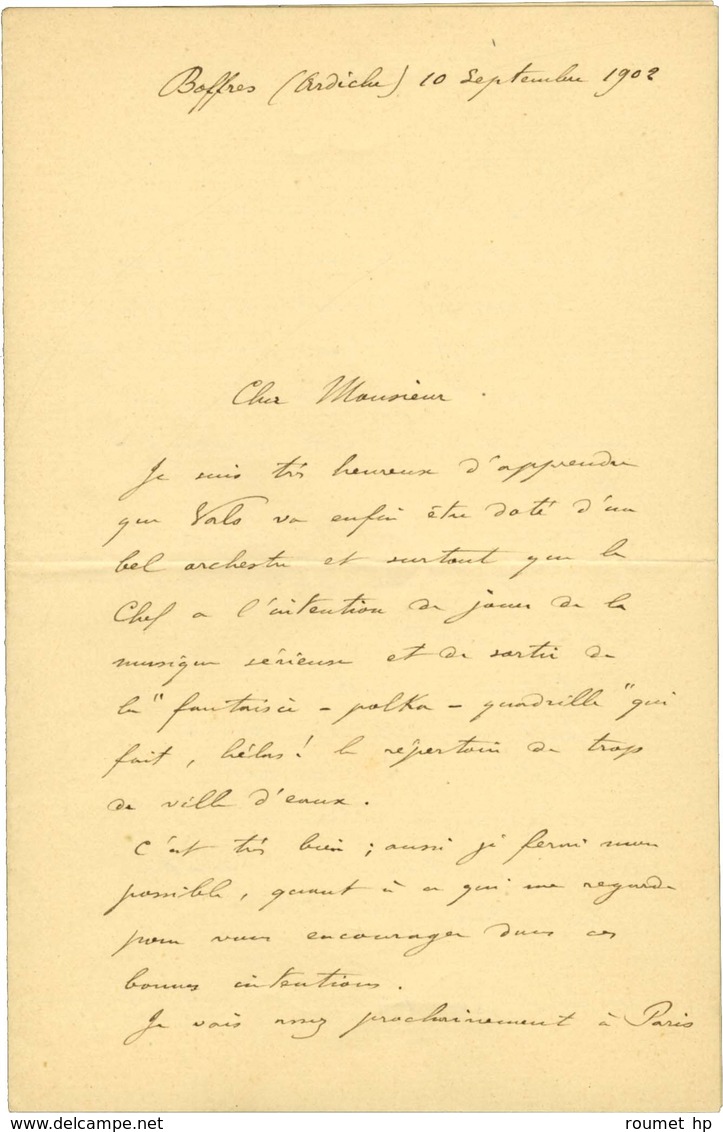 Boffres (Ardèche) 10 Septembre 1902
Cher Monsieur.
Je suis très heureux d'apprendre
que Vals va enfin être doté d'un
bel orchestre et surtout que le
Chef a l'intention de jouer de la
musique sérieuse et de sortir de
la "fantaisie - polka - quadrille" qui
fait, hélas! le répertoire de trop
de ville d'eaux.
C'est très bien; aussi je ferai mon
possible, quant à ce qui me regarde
pour vous encourager dans ces
bonnes intentions.
Je vais assez prochainement à Paris
www.delcampe.net
roumet hp